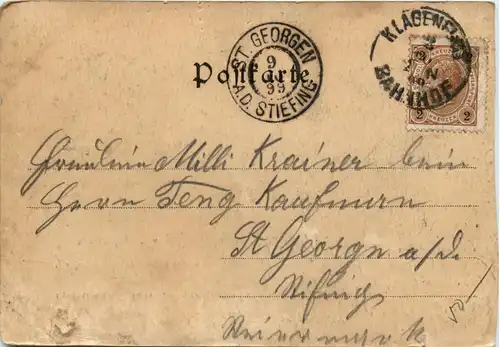 Postkarte.
ST. GEORGEN
9
99
A.D. STIEFING
KLAGENFURT
BAHNHOF
2 2
Fräulein Milli Krainer beim
Herrn Feng Kaufmann
St Georgn a/d
Stifing
Steiermark